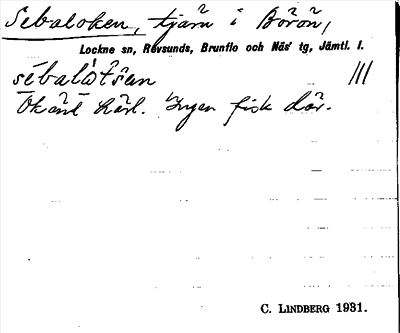 Sebaloken, tjärn i Börön,
Lockne sn, Revsunds, Brunflo och Näs' tg, Jämtl. l.
Okänt härl. Ingen fisk där.
C. LINDBERG 1931.